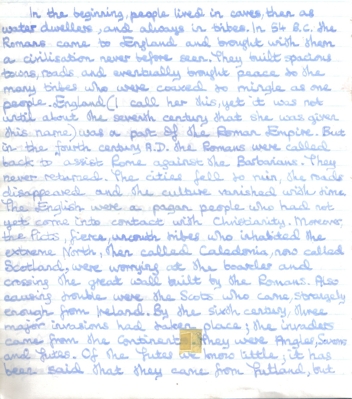 In the beginning, people lived in caves, then as
water dwellers, and always in tribes. In 54 B.C. the
Romans came to England and brought with them
a civilisation never before seen. They built spacious
towns, roads and eventually brought peace to the
many tribes who were coaxed to mingle as one
people. England (I call her this, yet it was not
until about the seventh century that she was given
this name) was a part of the Roman Empire. But
in the fourth century A.D. the Romans were called
back to assist Rome against the Barbarians. They
never returned. The cities fell to ruin, the roads
disappeared and the culture vanished with time.
The English were a pagan people who had not
yet come into contact with Christianity. Moreover,
the Picts, fierce, uncouth tribes who inhabited the
extreme North, then called Caledonia, now called
Scotland, were worrying at the boarder and
crossing the great wall built by the Romans. Also
causing trouble were the Scots who came, strangely
enough from Ireland. By the sixth century, three
major invasions had taken place; the invaders
came from the Continent. They were Angles, Saxons
and Jutes. Of the Jutes we know little; it has
been said that they came from Jutland, but